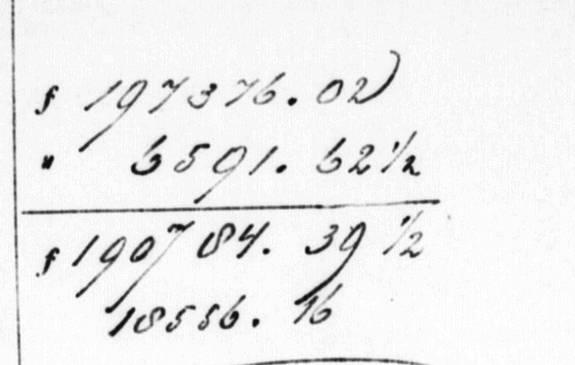 f 197376.02)
" 6591.62½
f 190784.39½
18556.16